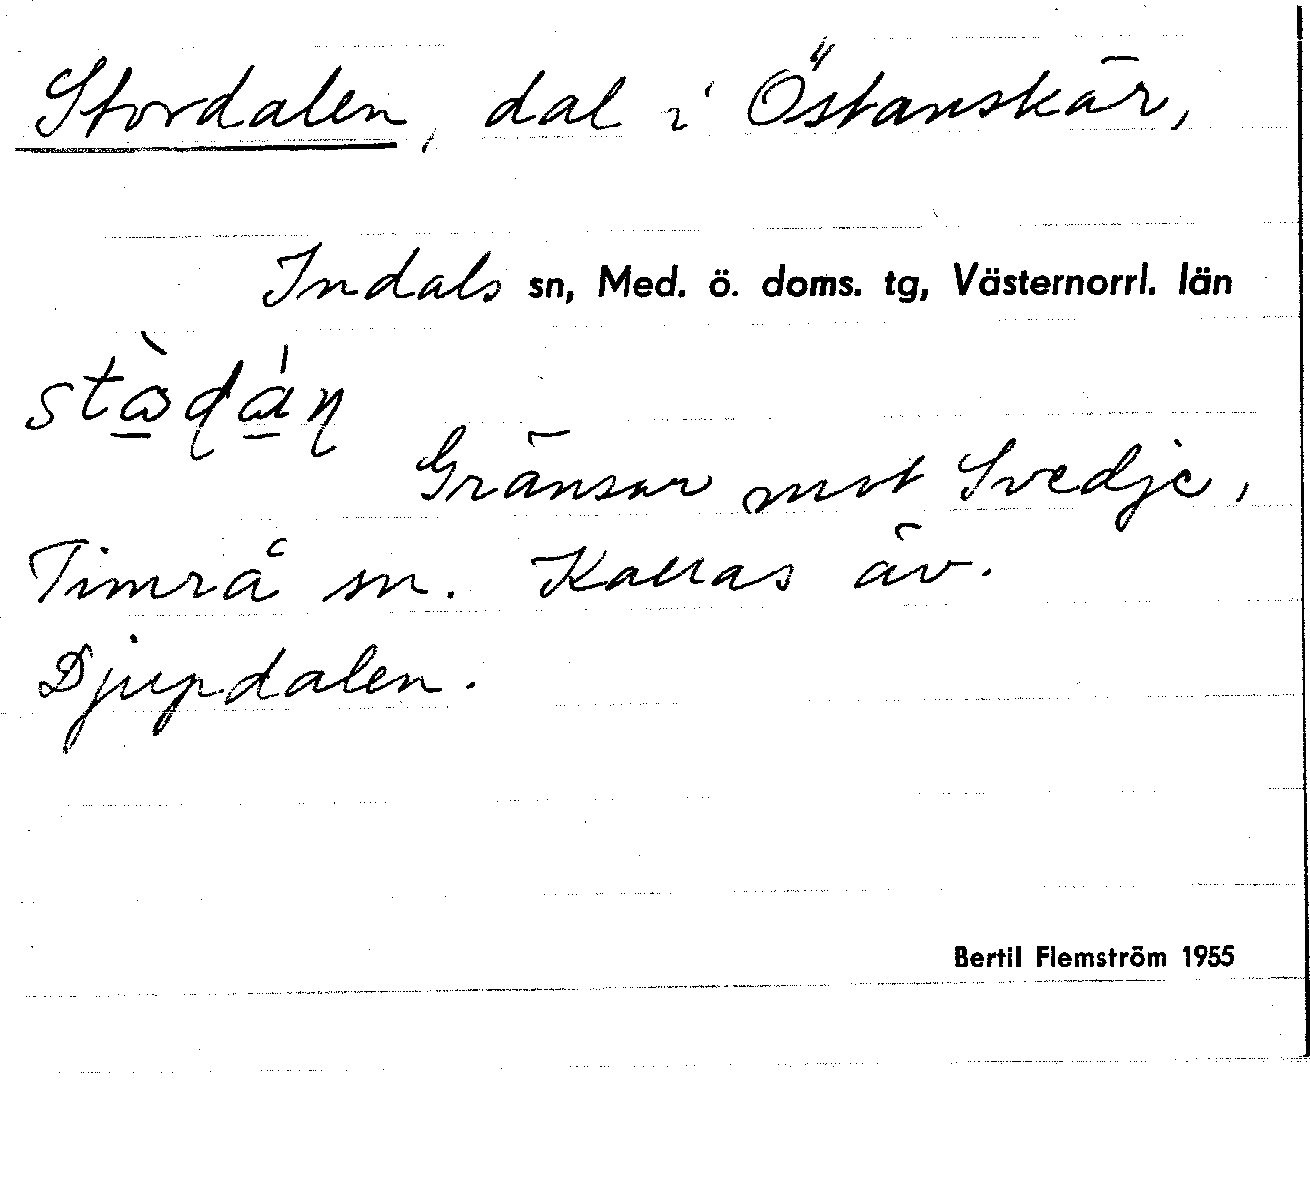 Stordalen, dal i Östanskär,
Indals sn, Med. ö. doms. tg, Västernorrl. län
Gränsar mot Svedje,
Timrå sn. Kallas äv.
Djupdalen.
Bertil Flemström 1955